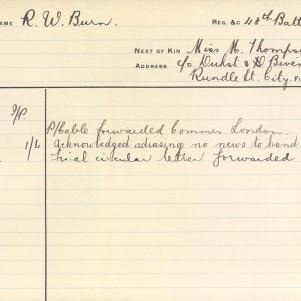 NAME R. W. Burn. REG. &C 48th Batt
NEXT OF KIN Miss M. Thomps
ADDRESS c/o Duhst & Biven
Rundle St. City.
P/Cable forwarded Commrs London.
1/4 Acknowledged adviasing no news to hand
trial circular letter forwarded